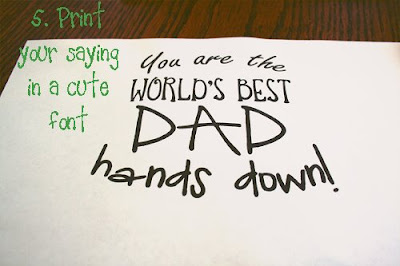 5. Print
your saying
in a cute
font
You are the
WORLD'S BEST
DAD
hands down!